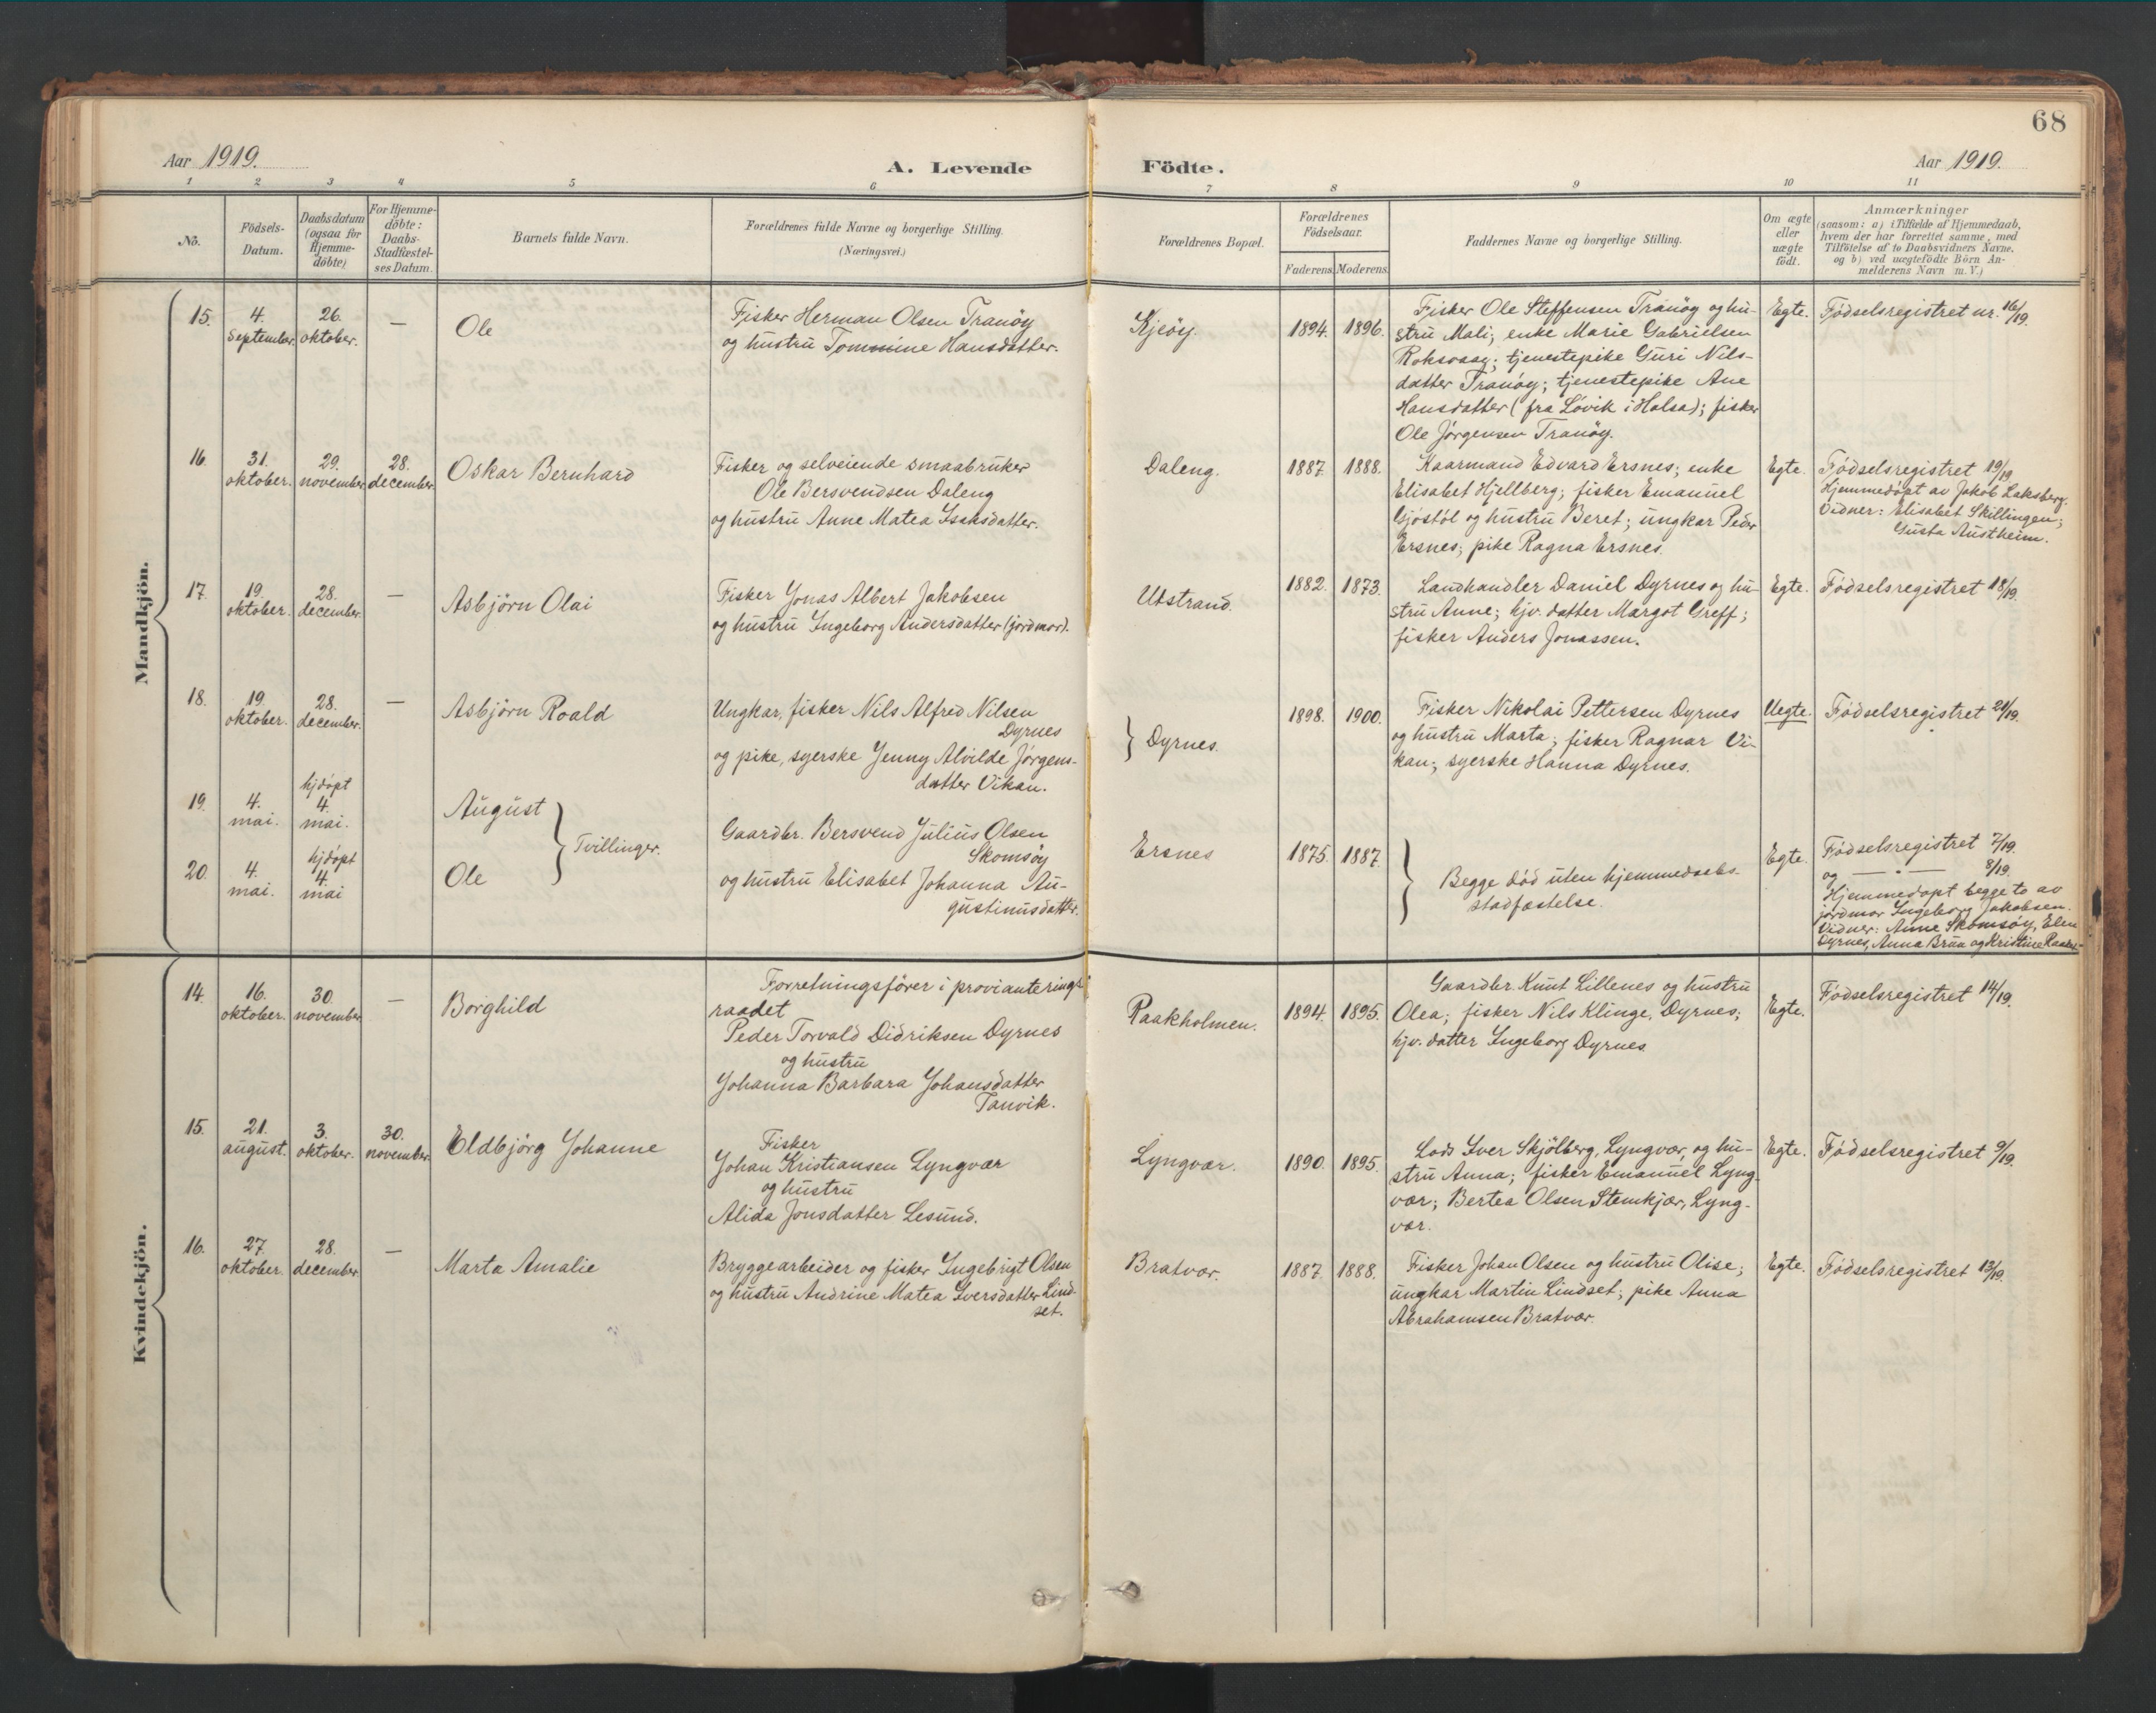 68
Aar 1919.
A. Levende Födte.
Aar 1919.
1 2 3 4 5 6 7 8 9 10 11
No.
Födsels-
Datum.
Daabsdatum
(ogsaa for
Hjemme-
döbte)
For Hjemme-
döbte:
Daabs-
Stadfæstel-
ses Datum.
Barnets fulde Navn.
Forældrenes fulde Navne og borgerlige Stilling.
(Næringsvei.)
Forældrenes Bopæl.
Forældrenes
Födselsaar.
Faderens. Moderens.
Faddernes Navne og borgerlige Stilling.
Om ægte
eller
uægte
födt.
Anmærkninger
(saasom: a) i Tilfælde af Hjemmedaab,
hvem der har forrettet samme, med
Tilföielse af to Daabsvidners Navne,
og b) ved uægtefödte Börn An-
melderens Navn m. V.)
Mandkjön.
15.
4.
September.
26.
oktober.
—
Ole
Fisker Herman Olsen Tranöy
og hustru Tommine Hansdatter.
Kjeöy.
1894. 1896.
Fisker Ole Steffensen Tranöy og hu-
stru Mali; enke Marie Gabrielsen
Roksvaag; tjenestepike Guri Nils-
datter Tranöy; tjenestepike Ane
Hansdatter (fra Lövik i Halsa); fisker
Ole Jörgensen Tranöy.
Egte.
Födselsregistret nr. 16/19.
16.
31.
oktober.
29.
november
28.
december.
Oskar Bernhard
Fisker og selveiende smaabruker
Ole Bersvendsen Daleng
og hustru Anne Matea Isaksdatter.
Daleng.
1887. 1888.
Kaarmand Edvard Ersnes; enke
Elisabet Hjellberg; fisker Emanuel
Gjöstöl og hustru Beret; ungkar Peder
Ersnes; pike Ragna Ersnes.
Egte.
Födselsregistret 19/19
Hjemmedöpt av Jakob Laksberg.
Vidner: Elisabet Skillingen;
Gusta Austheim.
17.
19.
oktober.
28.
december.
—
Asbjörn Olai
Fisker Jonas Albert Jakobsen
og hustru Ingeborg Andersdatter (jordmor).
Utstrand.
1882. 1873.
Landhandler Daniel Dyrnes og hu-
stru Anne; hjv. datter Margot Greff;
fisker Anders Jonassen.
Egte.
Födselsregistret 18/19.
18.
19.
oktober.
28.
december.
—
Asbjörn Roald
Ungkar, fisker Nils Alfred Nilsen
Dyrnes
og pike, syerske Jenny Alvilde Jörgens-
datter Vikan.
Dyrnes.
1898. 1900.
Fisker Nikolai Pettersen Dyrnes
og hustru Marta; fisker Ragnar Vi-
kan; syerske Hanna Dyrnes.
Uegte.
Födselsregistret 21/19.
19.
4.
mai.
hjdöpt
4.
mai.
August
Tvillinger.
20.
4.
mai.
hjdöpt
4.
mai
Ole
Gaardbr. Bersvend Julius Olsen
Skomsöy
og hustru Elisabet Johanna Au-
gustinusdatter.
Ersnes
1875. 1887.
Begge död uten hjemmedaabs-
stadfæstelse.
Egte.
Födselsregistret 7/19.
og — " — 8/19.
Hjemmedöpt begge to av
jordmor Ingeborg Jakobsen.
Vidner: Anne Skomsöy, Elen
Dyrnes, Anna Bruu og Kristine
Kvindekjön.
14.
16.
oktober.
30.
november
—
Borghild
Forretningsförer i provianterings-
raadet
Peder Torvald Didriksen Dyrnes
og hustru
Johanna Barbara Johansdatter
Tanvik.
Raakholmen.
1894. 1895.
Gaardbr. Knut Lillenes og hustru
Olea; fisker Nils Klinge, Dyrnes;
hjv. datter Ingeborg Dyrnes.
Egte.
Födselsregistret 14/19.
15.
21.
august.
3.
oktober.
30.
november.
Eldbjörg Johanne
Fisker
Johan Kristiansen Lyngvær
og hustru
Alida Jonsdatter Lesund.
Lyngvær.
1890. 1895.
Lods Iver Skjölberg, Lyngvær, og hu-
stru Anna; fisker Emanuel Lyng-
vær; Bertea Olsen Stemkjær, Lyng-
vær.
Egte.
Födselsregistret 9/19.
16.
27.
oktober.
28.
december.
—
Marta Amalie
Bryggearbeider og fisker Ingebrigt Olsen
og hustru Andrine Matea Iversdatter Lind-
set.
Bratvær.
1887. 1888.
Fisker Johan Olsen og hustru Olise;
ungkar Martin Lindset; pike Anna
Abrahamsen Bratvær.
Egte.
Födselsregistret 13/19.